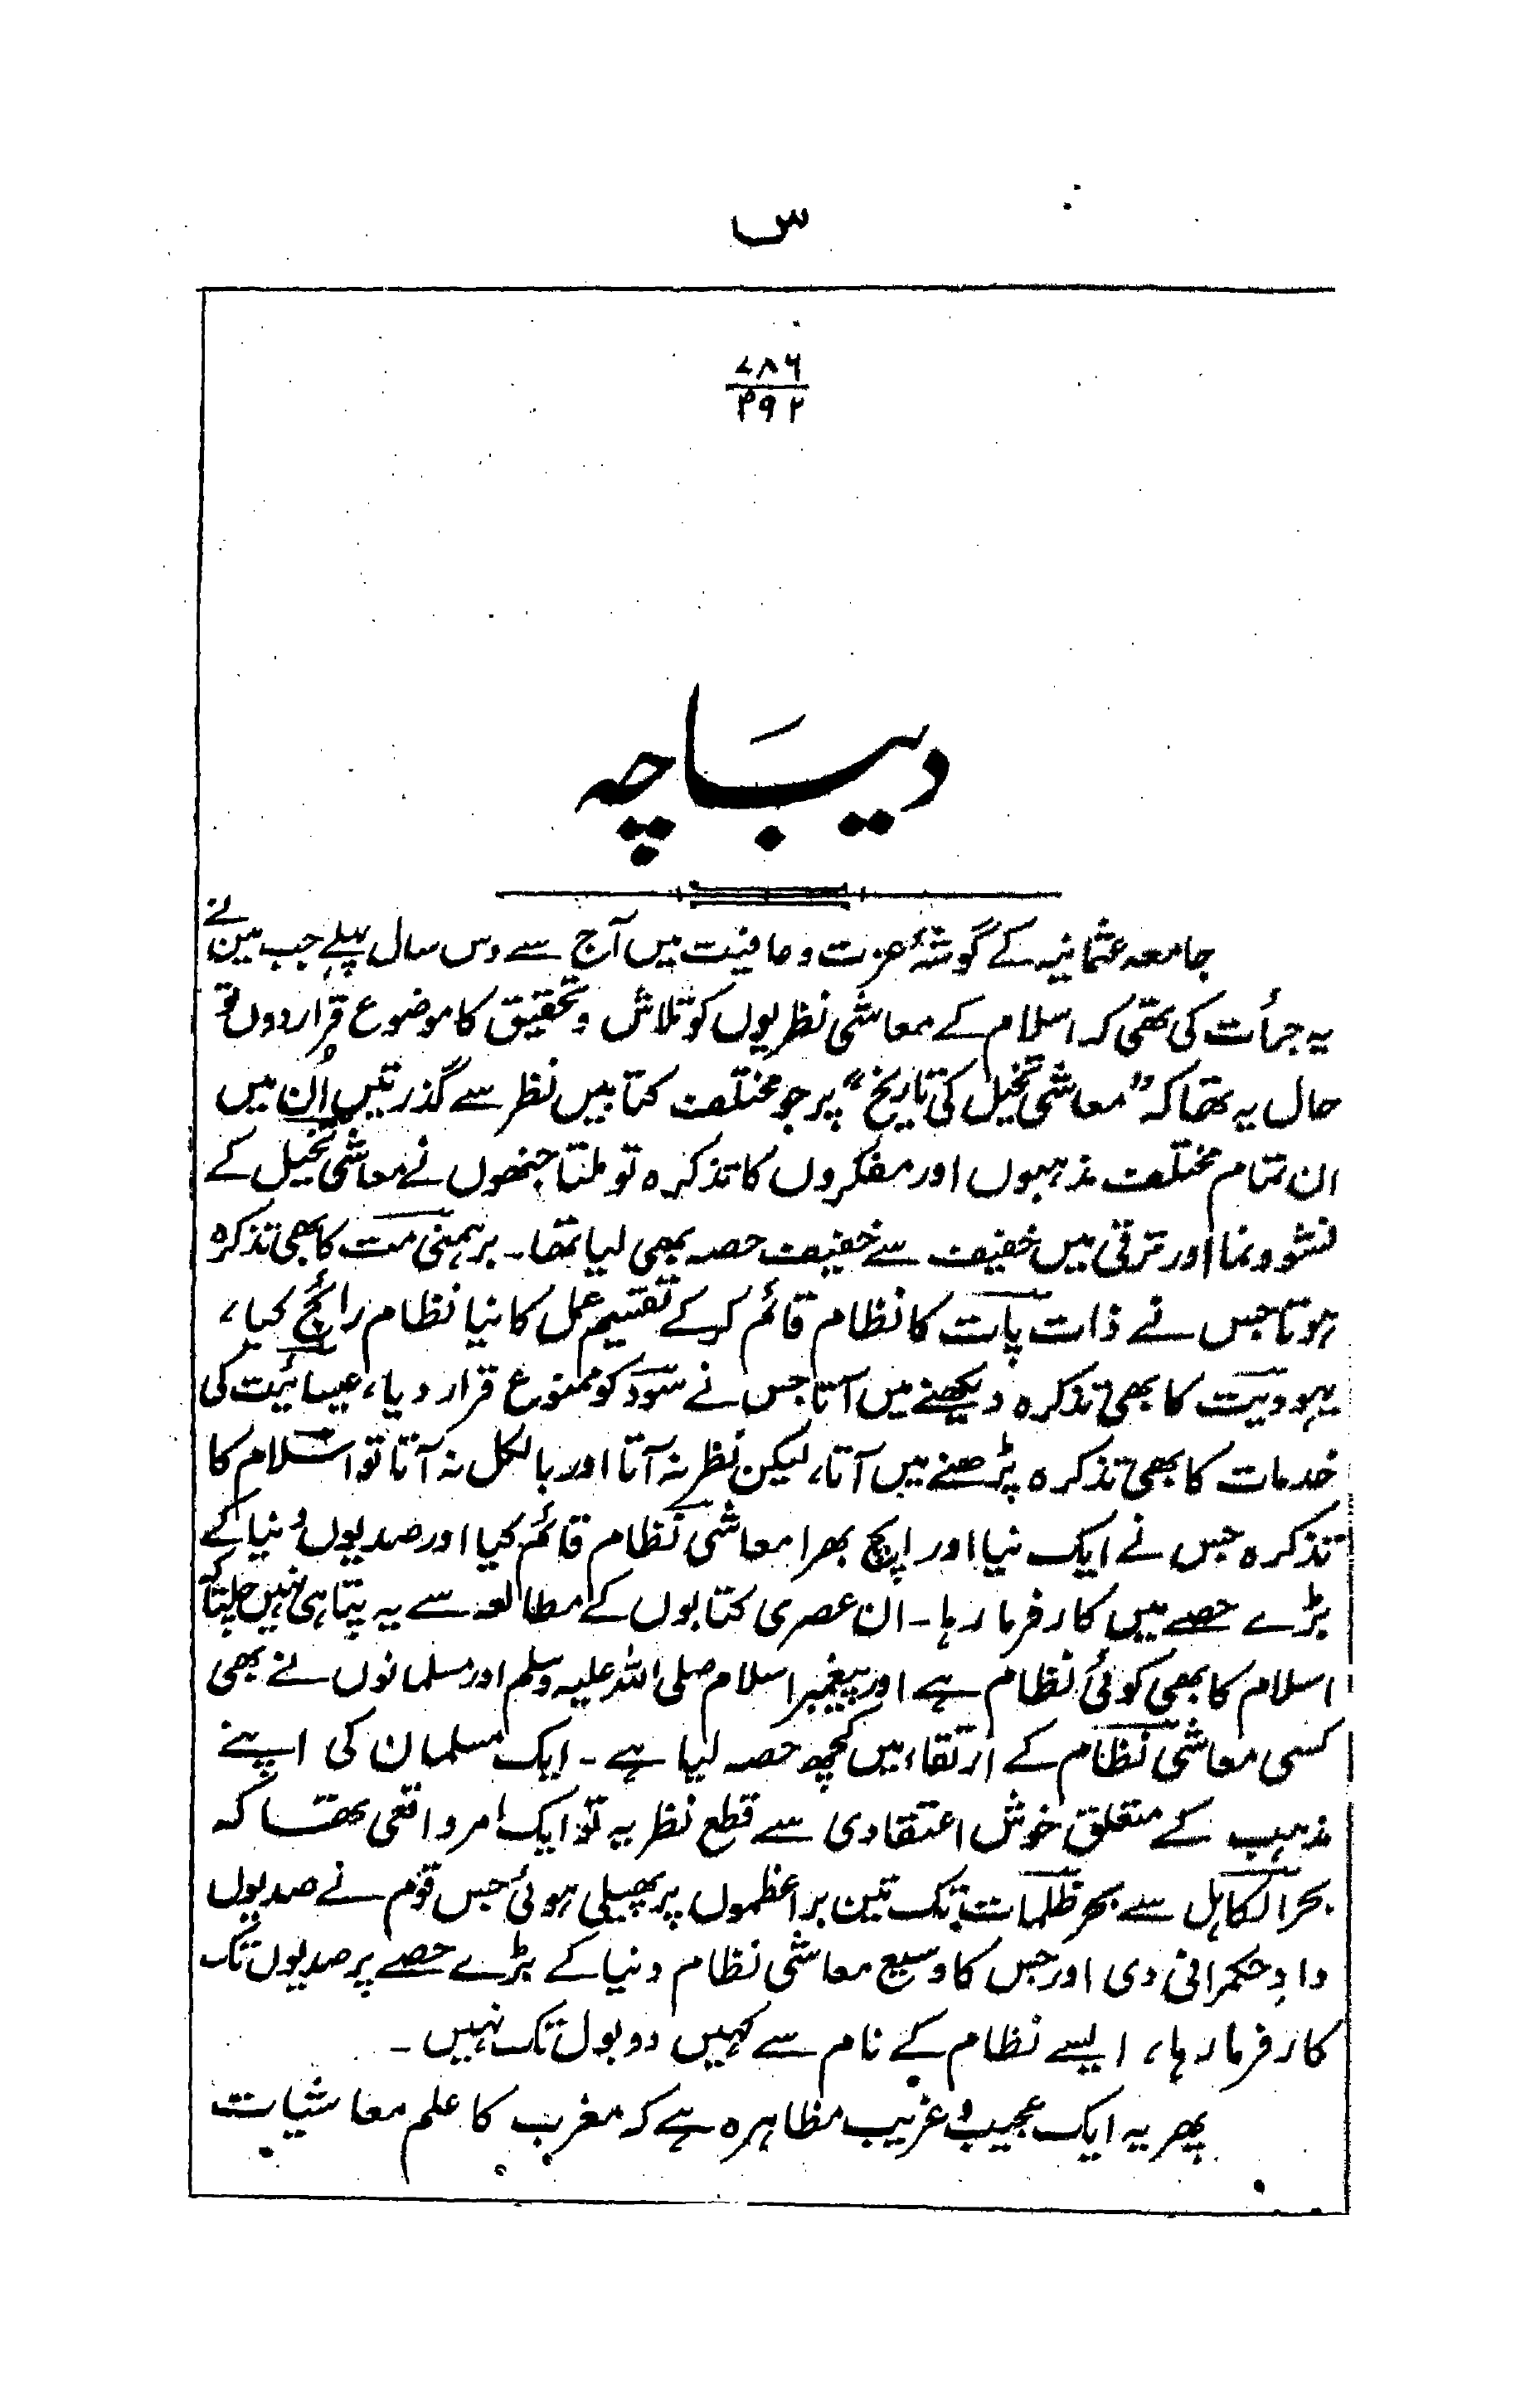 س
۷۸۶
۴۹۲
دیباچہ
جامعہ عثمانیہ کے گوشۂ عزت و عافیت میں آج سے دس سال پہلے جب میں نے
یہ جرأت کی تھی کہ اسلام کے معاشی نظریوں کو تلاش و تحقیق کا موضوع قرار دوں تو
حال یہ تھا کہ "معاشی تخیل کی تاریخ" پر جو مختلف کتابیں نظر سے گذرتیں اُن میں
ان تمام مختلف مذہبوں اور مفکروں کا تذکرہ تو ملتا جنھوں نے معاشی تخیل کے
نشوونما اور ترقی میں خفیف سے خفیف حصہ بھی لیا تھا۔ برہمنی مت کا بھی تذکرہ
ہوتا جس نے ذات پات کا نظام قائم کرکے تقسیم عمل کا نیا نظام رائج کیا،
یہودیت کا بھی تذکرہ دیکھنے میں آتا جس نے سود کو ممنوع قرار دیا، عیسائیت کی
خدمات کا بھی تذکرہ پڑھنے میں آتا، لیکن نظر نہ آتا اور بالکل نہ آتا تو اسلام کا
تذکرہ جس نے ایک نیا اور اپچ بھرا معاشی نظام قائم کیا اور صدیوں دنیا کے
بڑے حصے میں کارفرما رہا۔ ان عصری کتابوں کے مطالعہ سے یہ پتا ہی نہیں چلتا کہ
اسلام کا بھی کوئی نظام ہے اور پیغمبر اسلام صلی اللہ علیہ وسلم اور مسلمانوں نے بھی
کسی معاشی نظام کے ارتقاء میں کچھ حصہ لیا ہے۔ ایک مسلمان کی اپنے
مذہب کے متعلق خوش اعتقادی سے قطع نظر یہ تو ایک امر واقعی تھا کہ
بحر الکاہل سے بحر ظلمات تک تین براعظموں پر پھیلی ہوئی جس قوم نے صدیوں
دادِ حکمرانی دی اور جس کا وسیع معاشی نظام دنیا کے بڑے حصے پر صدیوں تک
کارفرما رہا، ایسے نظام کے نام سے کہیں دو بول تک نہیں۔
پھر یہ ایک عجیب و غریب مظاہرہ ہے کہ مغرب کا علم معاشیات